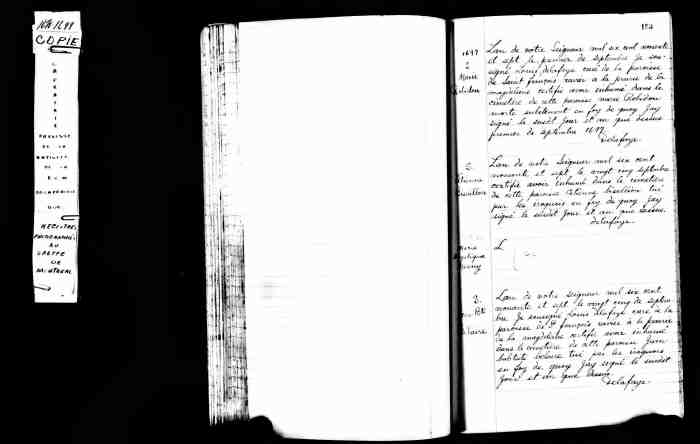 1676-1699
COPIE
LAPRAIRIE
PAROISSE
DE LA
NATIVITE
DE LA
B.V.M
REGISTRE
PHOTOGRAPHIE
AU
GREFFE
DE
MONTREAL
184
1697
S
Marie
Robidou
L'an de notre Seigneur mil six cent nonante
et sept le premier de septembre Je sous-
signé Louis delafaye curé de la paroisse
de Saint François xavier a la prairie de la
magdeleine certifie avoir enhumé dans le
cimetière de cette paroisse marie Robidou
morte subitement en foy de quoy Jay
signé le susdit Jour et an que dessus
premier de septembre 1697
delafaye.
S.
Etienne
Bisaillon
L'an de notre Seigneur mil six cent
nonante et sept le vingt cinq septembre
certifie avoir enhumé dans le cimetière
de cette paroisse Etienne bisaillon tué
par les iroquois en foy de quoy Jay
signé le susdit Jour et an que dessus.
delafaye.
Marie
Angelique
L
S.
L'an de notre Seigneur mil six cent
nonante et sept le vingt cinq de septem-
bre Je soussigné Louis delafaye curé à la
paroisse de St françois xavier à la prairie
de la magdeleine certifie avoir enhumé
dans le cimetière de cette paroisse Jean
babtiste tué par les iroquois
en foy de quoy Jay signé le susdit
Jour et an que dessus
delafaye.